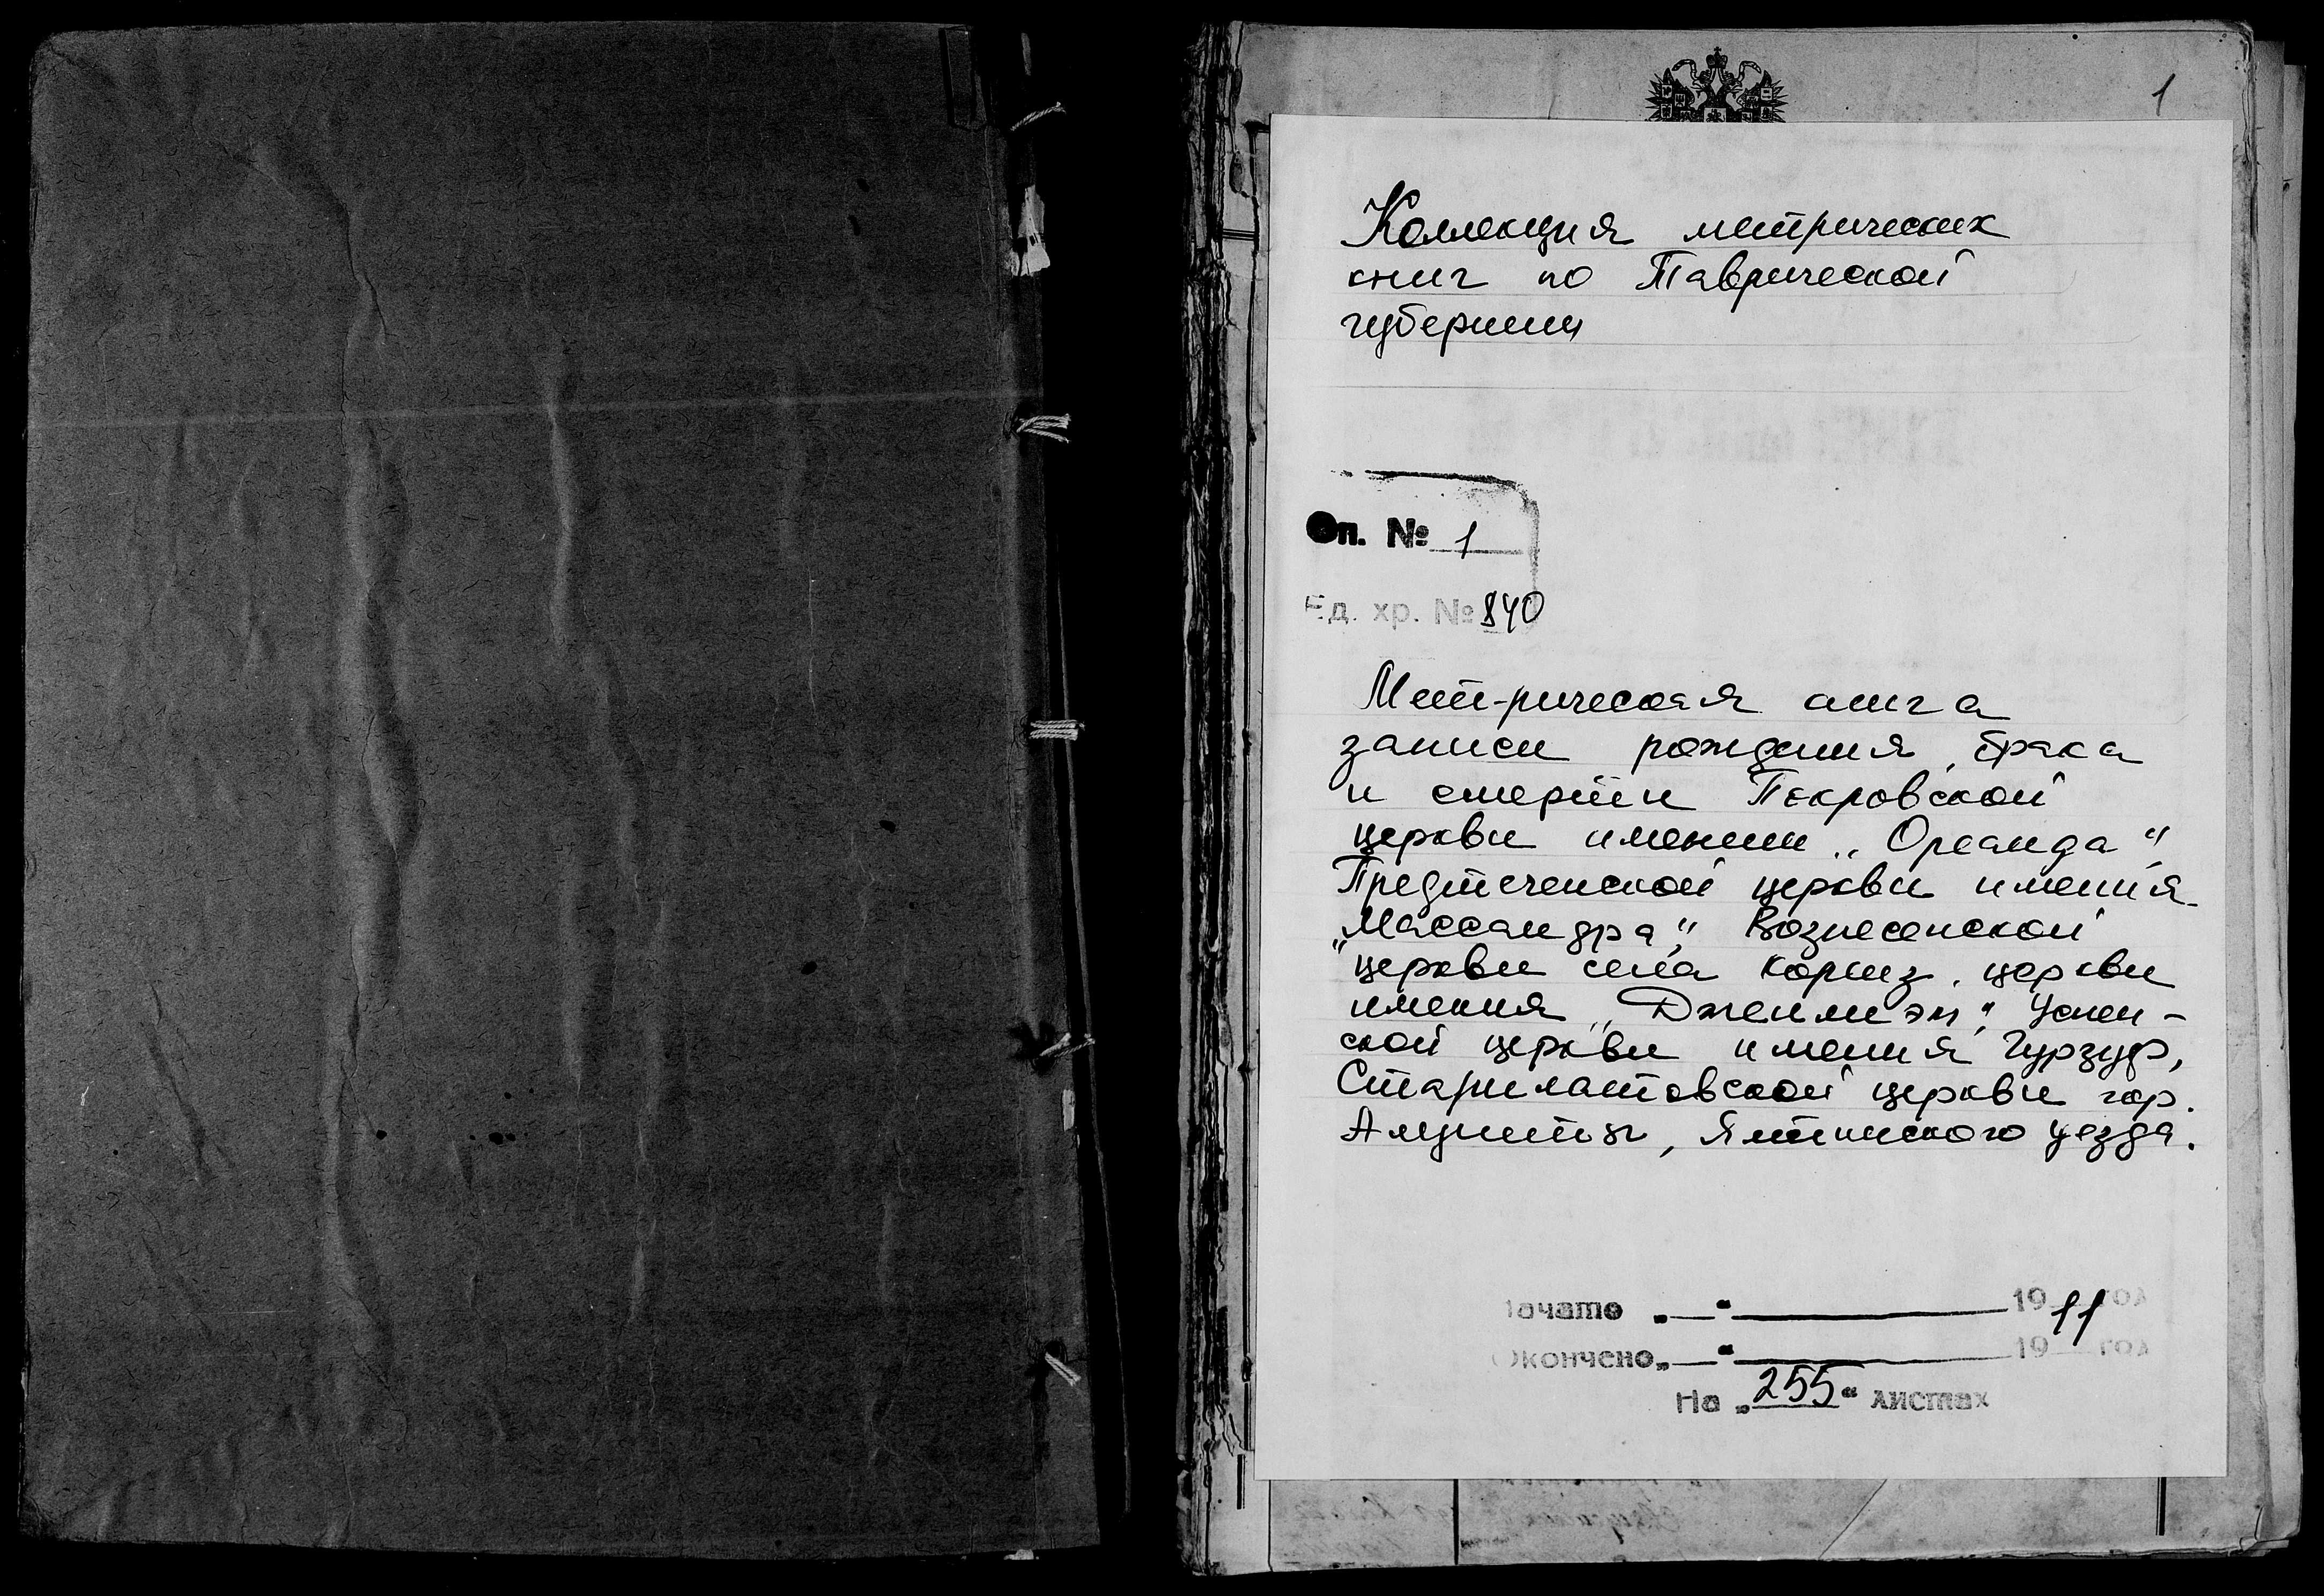 1
Коллекция метрических
книг по Таврической
губернии
Оп. № 1
Ед. хр. № 840
Метрическая книга
записи рождения, брака
и смерти Покровской
церкви имении „Ореанда"
Предтеченской церкви имения
„Массандра", Вознесенской
церкви села Кореиз, церкви
имения „Дженмиэн", Успен-
ской церкви имения Гурзуф,
церкви гор.
Алушты, Ялтинского уезда.
Начато „—" 1911 год
Окончено „—" 19 год
На „255" листах